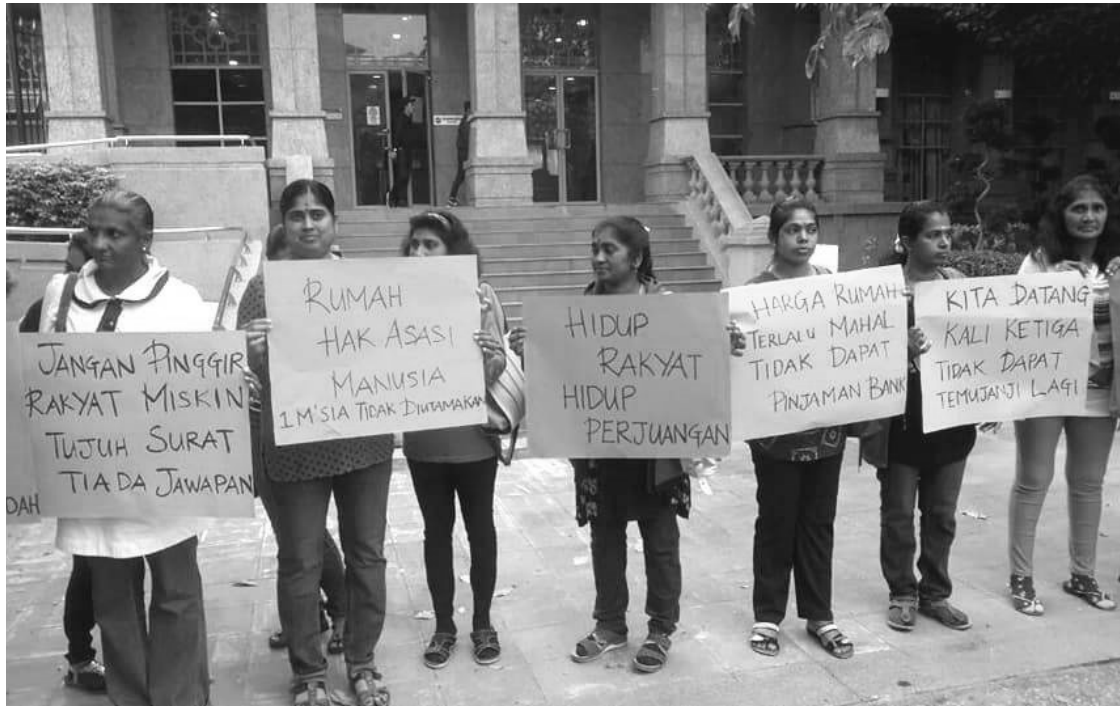 DAH
JANGAN PINGGIR
RAKYAT MISKIN
TUJUH SURAT
TIADA JAWAPAN
RUMAH
HAK ASASI
MANUSIA
1 M'SIA TIDAK DIUTAMAKAN
HIDUP
RAKYAT
HIDUP
PERJUANGAN
HARGA RUMAH
TERLALU MAHAL
TIDAK DAPAT
PINJAMAN BANK
KITA DATANG
KALI KETIGA
TIDAK DAPAT
TEMUJANJI LAGI